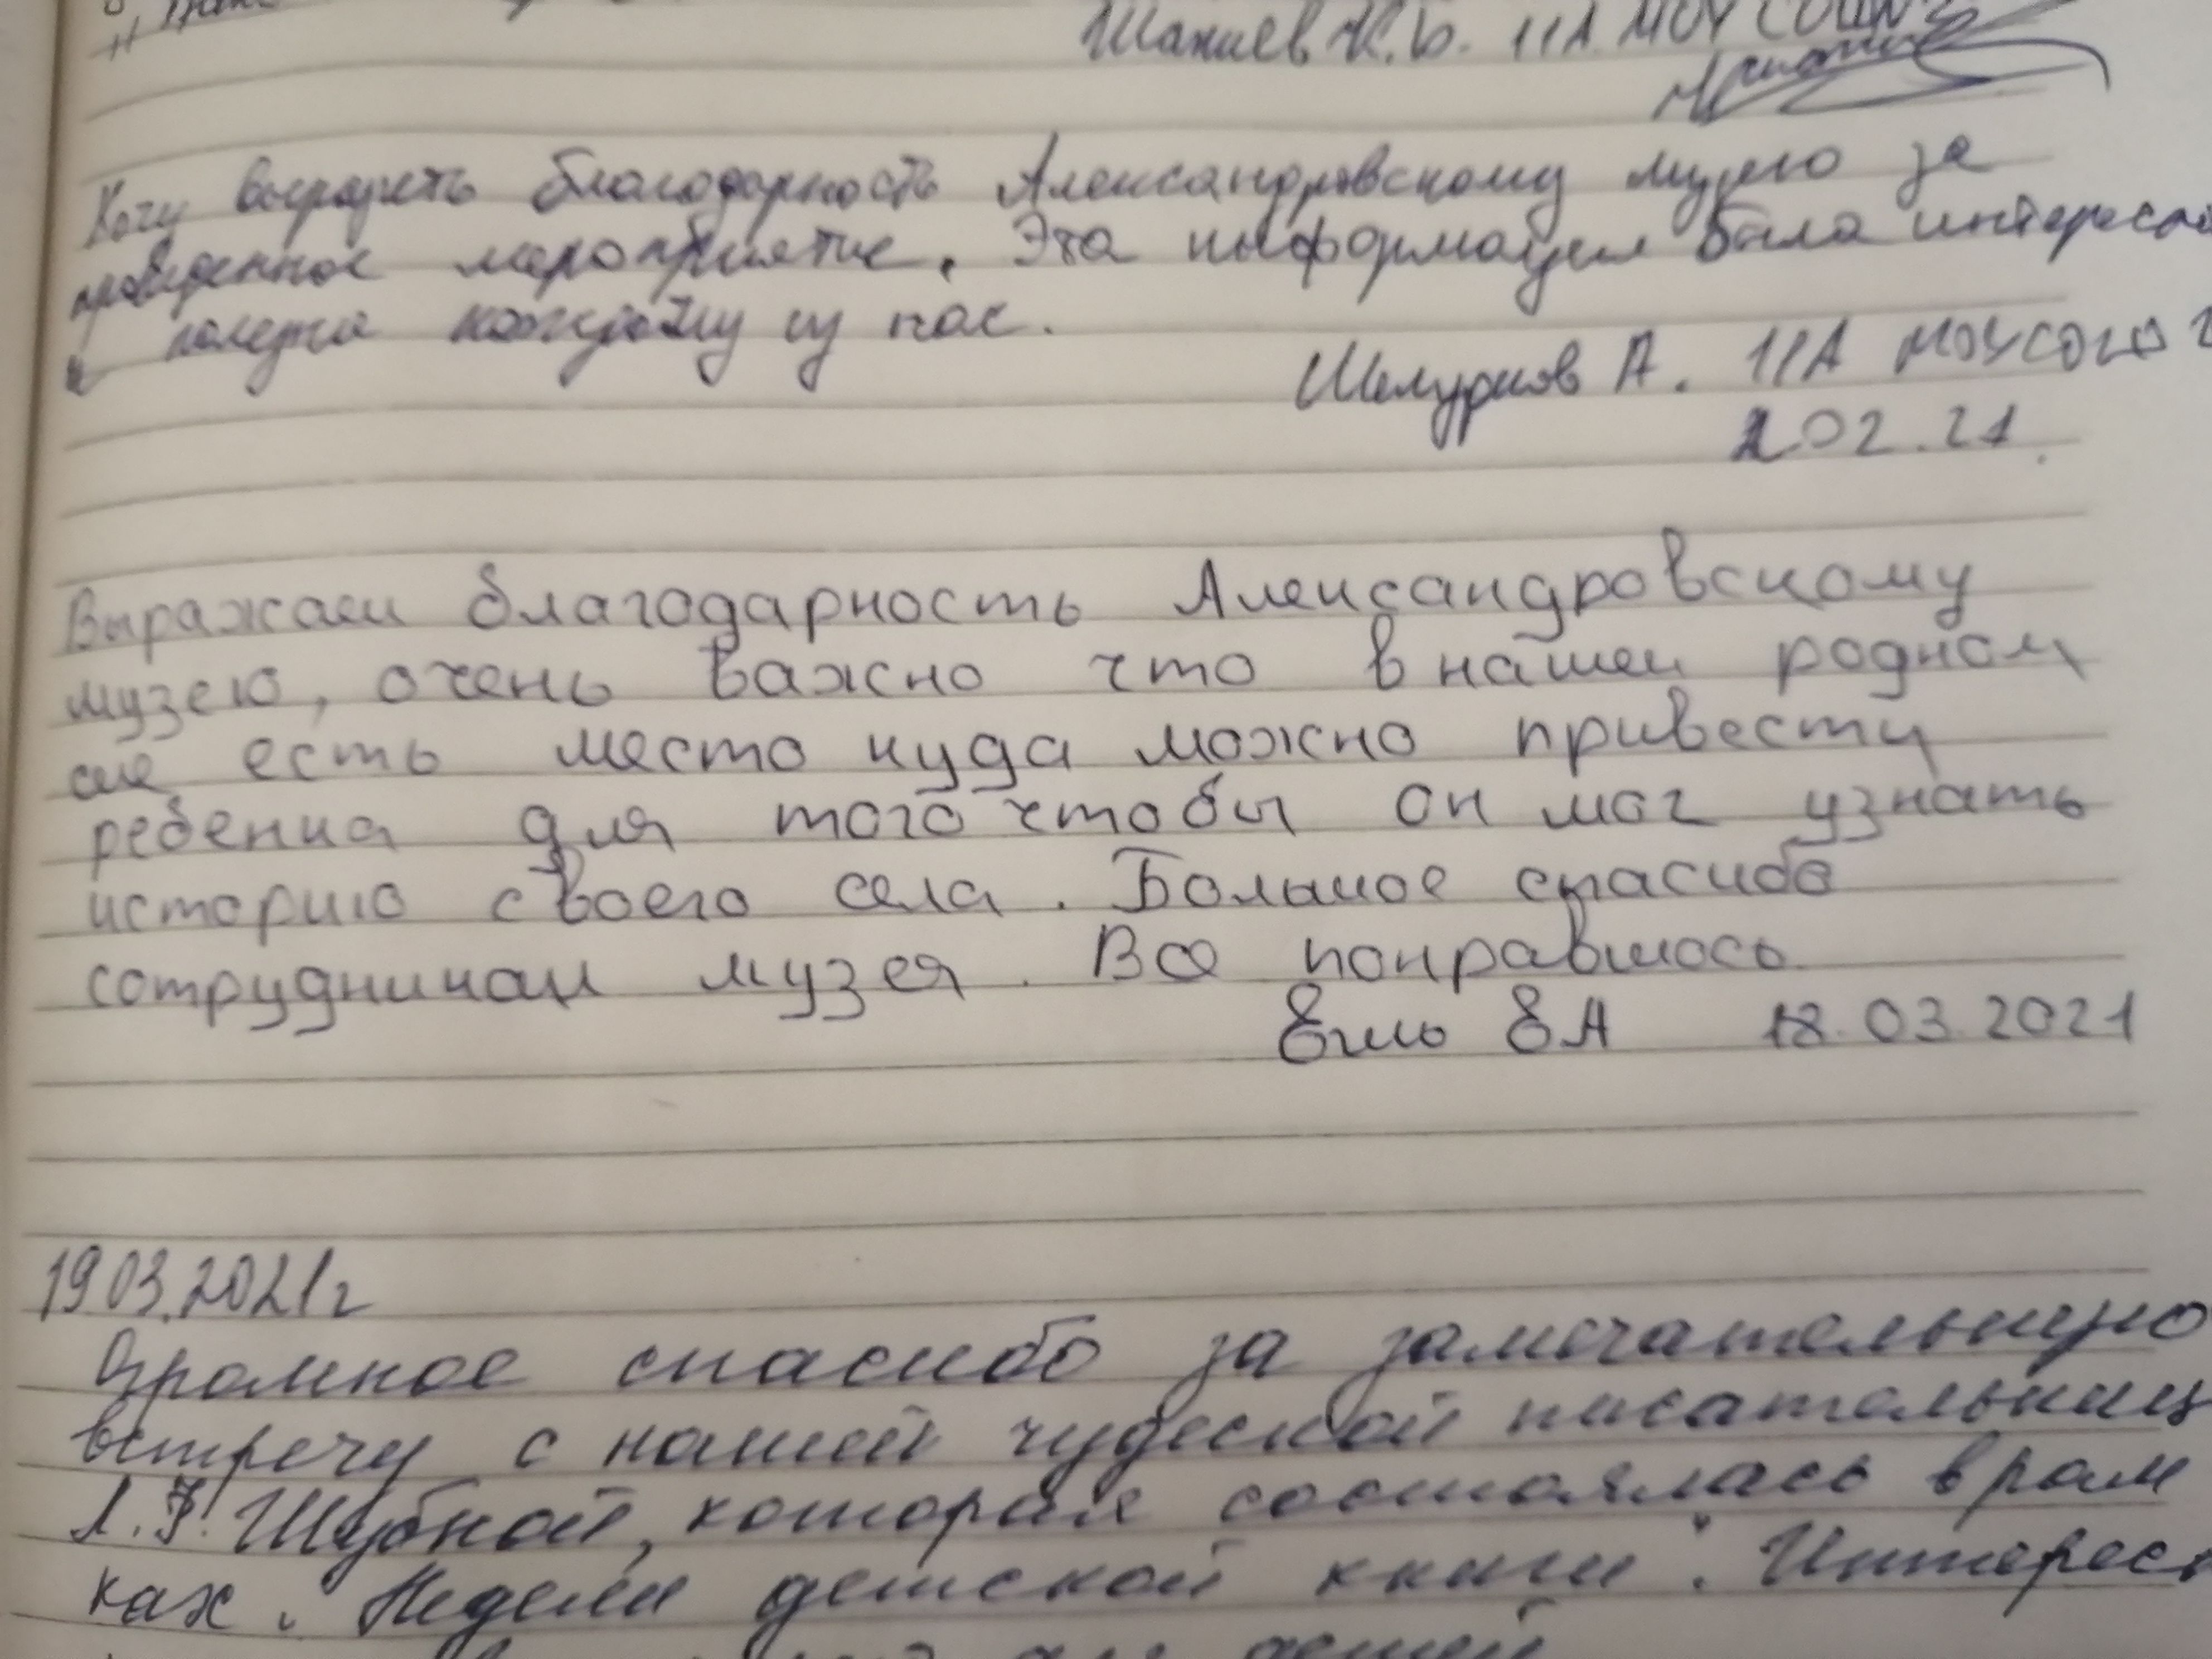 Шатиев К.Б. 11А МОУ СОШ№2
Хочу выразить благодарность Александровскому музею за
проведенное мероприятие. Эта информация была интересна
и полезна каждому из нас.
А. 11А МОУСОШ 2
202.21
Выражаем благодарность Александровскому
музею, очень важно что в нашем родном
селе есть место куда можно привести
ребенка для того чтобы он мог узнать
историю своего села. Большое спасибо
сотрудникам музея. Всё понравилось
ЕА 18.03.2021
19.03.2021г
Огромное спасибо за замечательную
встречу с нашей чудесной писательниц
Л.Ф. Шубной, которая состоялась в рам
ках. Недели детской книги. Интерес
для детей